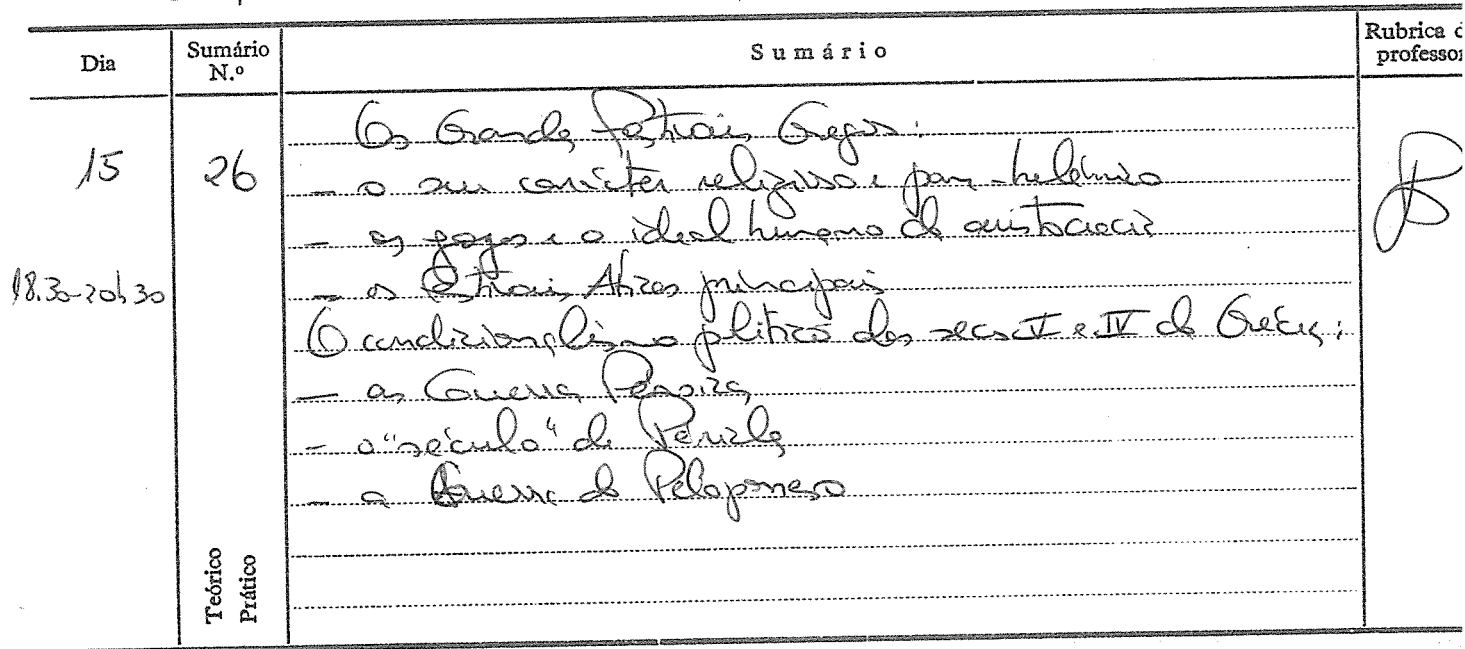 Dia
Sumário N.º
Sumário
Rubrica d
professor
15
26
18.30-20h30
Os Grandes Festivais Gregos:
- o seu carácter religioso e pan-helénico
- os jogos e o ideal humano da aristocracia
- os Festivais Áticos principais
O condicionalismo político dos secs V e IV da Grécia:
- as Guerras Pérsicas
- o "século" de Péricles
- a Guerra do Peloponeso
Teórico
Prático